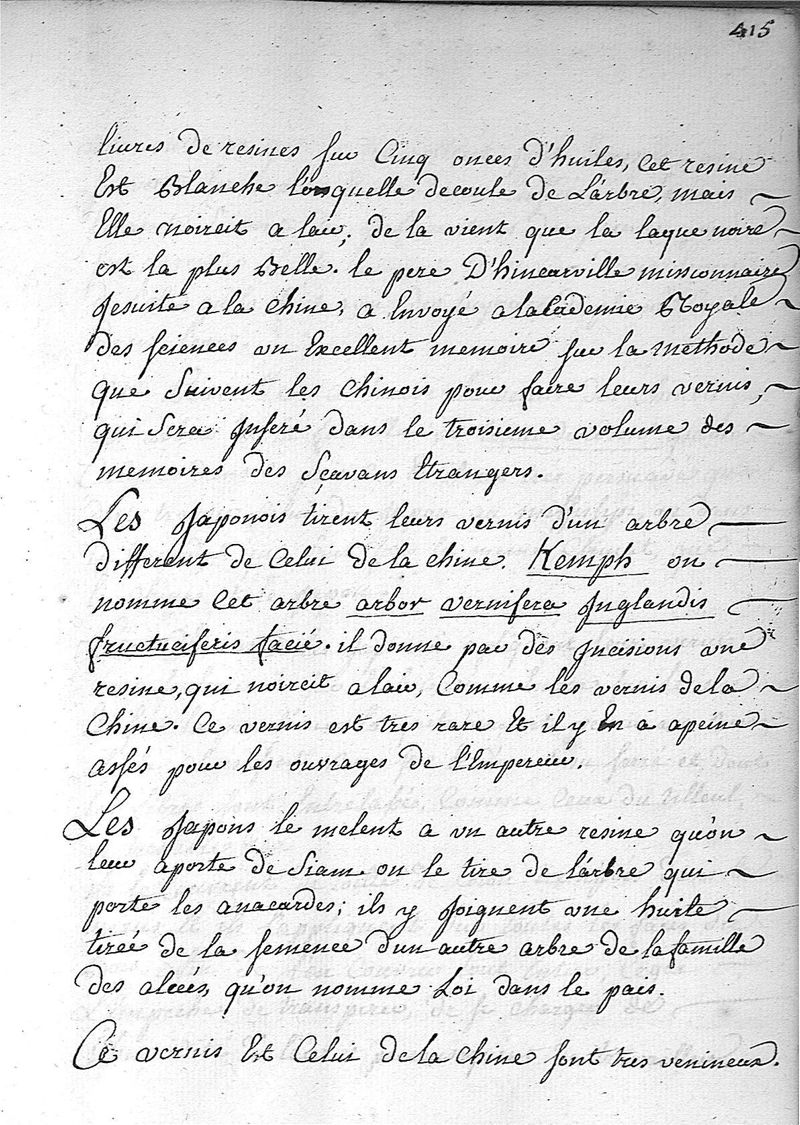 415
livres de resines sur Cinq onces d'huiles, Cet resine
Est Blanche lorsquelle decoule de L'arbre, mais
Elle noircit a lair, de la vient que la laque noire
est la plus Belle. le pere D'hincarville missionnaire
Jesuite a la Chine, a Envoyé a lacademie Royale
des sciences un Excellent memoire sur la methode
que Suivent les Chinois pour faire leurs vernis,
qui Sera Inseré dans le troisieme volume des
memoires des Sçavans Etrangers.
Les Japonois tirent leurs vernis d'un arbre
different de Celui de la chine. Kemph on
nomme Cet arbre arbor vernifera Juglandis
fructuciferis facié. il donne par des Incisions une
resine, qui noircit a lair, Comme les vernis de la
Chine. Ce vernis est tres rare Et il y En a apeine
assés pour les ouvrages de l'Empereur.
Les Japons le melent a un autre resine qu'on
leur aporte de Siam on le tire de l'arbre qui
porte les anacardes; ils y Joignent une huile
tirée de la semence d'un autre arbre de la famille
des alcees, qu'on nomme Loi dans le païs.
Ce vernis Et Celui de la Chine sont tres venineux.